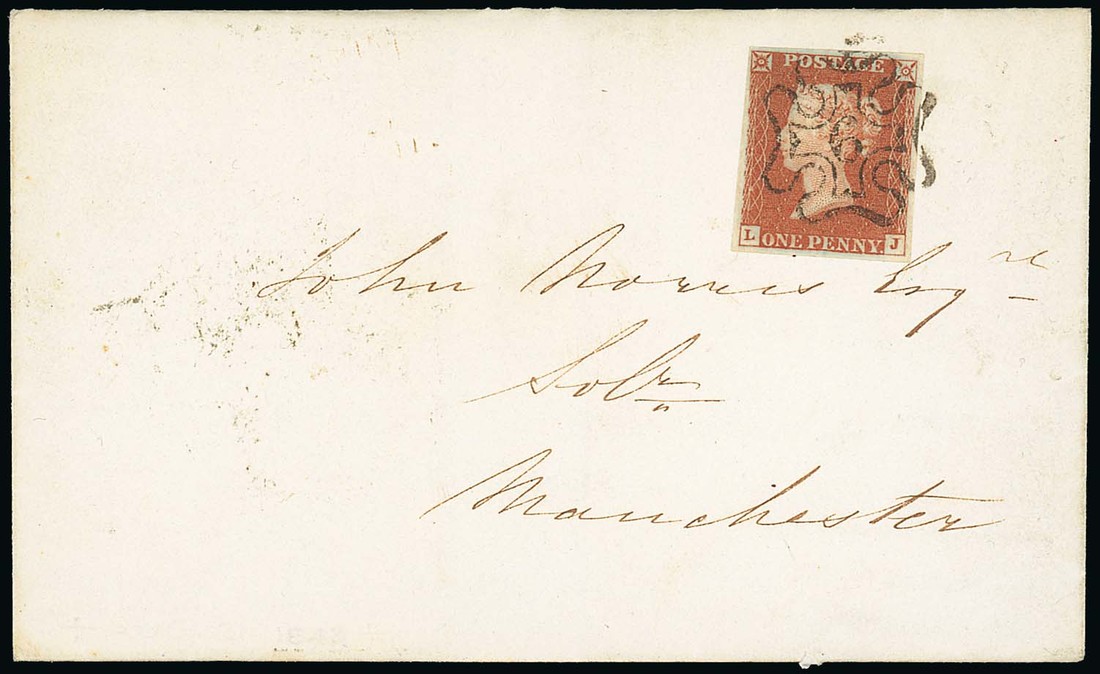 POSTAGE
6
L ONE PENNY J
John Norris Esqre
Solr
Manchester